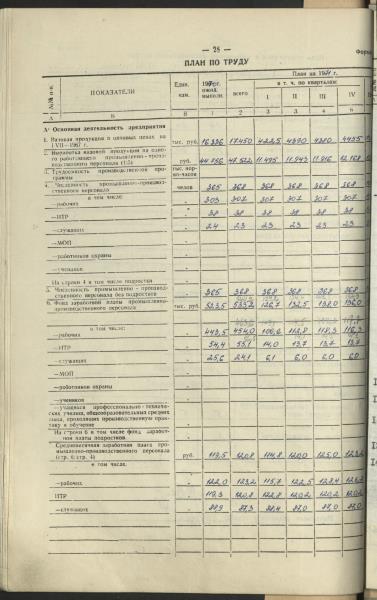 — 28 —
ПЛАН ПО ТРУДУ
№№ п-п.
ПОКАЗАТЕЛИ
Един. изм.
ожид. выполн.
План на 1971 г.
всего
в т. ч. по кварталам:
I II III IV
А Б В 1 2 3 4 5 6
А. Основная деятельность предприятия
1. Валовая продукция в оптовых ценах на тыс. руб. 16336 17450 4390
1/VII—1967 г.
2. Выработка валовой продукции на одно-
го работающего промышленно-произ-
водственного персонала (1:5) руб. 44756 11943
3. Трудоемкость производственной про-
граммы тыс. нор-
мо-часов
4. Численность промышленно-производ-
ственного персонала человек 365 368 368 368 368 368
в том числе:
—рабочих 303 307 307 307 307 307
—ИТР 38 38 38 38 38 38
—служащих 24 23 23 23 23 23
—МОП
—работников охраны
—учеников
Из строки 4 в том числе подростки
5. Численность промышленно-производ-
ственного персонала без подростков 365 368 368 368 368 368
6. Фонд заработной платы промышленно-
производственного персонала тыс. руб. 523,5 126,7 132,5 138,0 136,0
в том числе:
—рабочих 443,5 454,0 106,6 112,8 118,3
—ИТР 54,4 55,1 14,0 13,7 13,7 13,7
—служащих 25,6 24,1 6,1 6,0 6,0 6,0
—МОП
—работников охраны
—учеников
—учащихся профессионально-техниче-
ских училищ, общеобразовательных средних
школ, проходящих производственную прак-
тику и обучение
Из строки 6 в том числе фонд заработ-
ной платы подростков
Среднемесячная заработная плата про-
мышленно-производственного персонала
(стр. 6: стр. 4) руб. 119,5 120,8 114,8 120,0 125,0 123,2
в том числе:
—рабочих 122,0 123,2 115,7 122,5 128,4
ИТР 119,3 120,8 122,8 120,2 120,2 120,2
—служащих 88,9 87,3 88,4 87,0 87,0 87,0